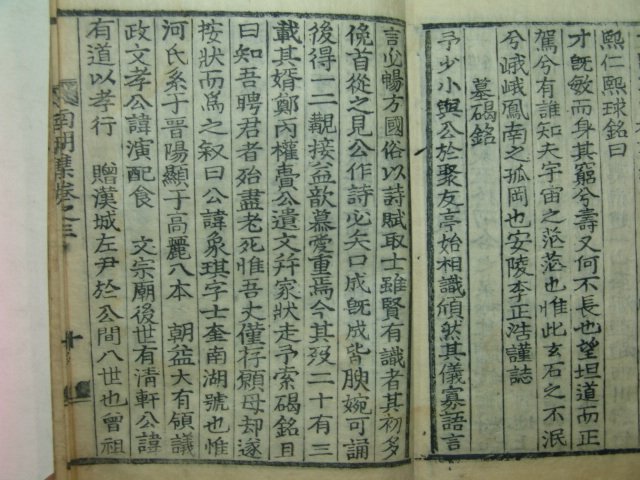 熙仁熙球銘曰
才旣敏而身其窮兮壽又何不長也望坦道而正
駕兮有誰知夫宇宙之茫茫也惟此玄石之不泯
兮峨峨鳳南之孤岡也安陵李正浩謹誌
墓碣銘
予少小與公於聚友亭始相識頎然其儀寡語言
言必暢方國俗以詩賦取士雖賢有識者其初多
俛首從之見公作詩必矢口成旣成皆腴婉可誦
後得一二覯接益歆慕愛重焉今其歿二十有三
載其婿鄭丙權賷公遺文幷家狀走予索碣銘且
曰知吾聘君者殆盡老死惟吾丈僅存願毋却遂
按狀而爲之叙曰公諱象琪字士奎南湖號也惟
河氏系于晉陽顯于高麗入本 朝益大有領議
政文孝公諱演配食 文宗廟後世有淸軒公諱
有道以孝行 贈漢城左尹於公間八世也曾祖
南湖集卷之三
十